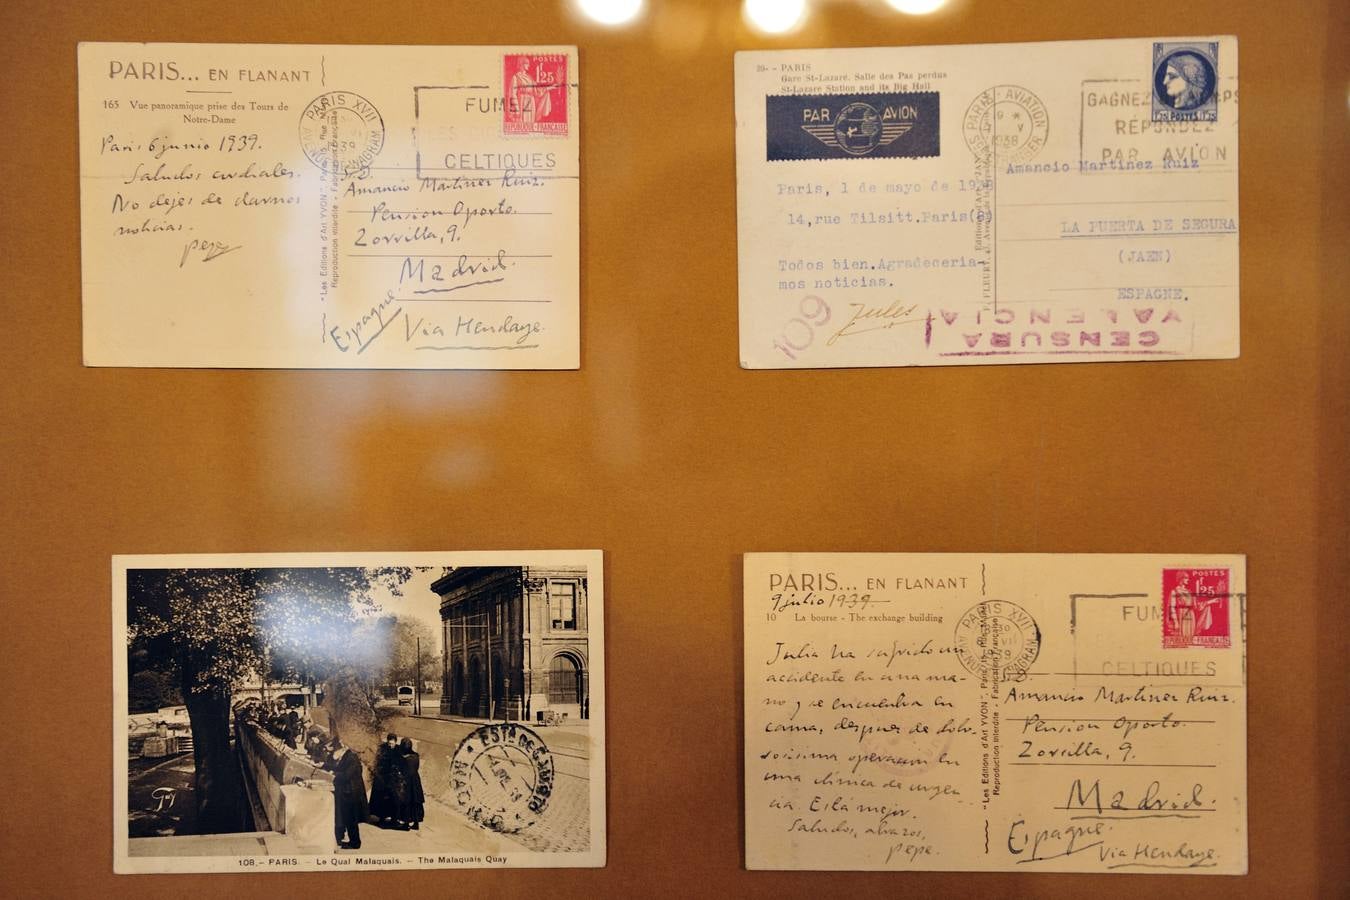 PARIS... EN FLANANT
165 Vue panoramique prise des Tours de
Notre-Dame
Paris 6 junio 1939.
Saludos cordiales.
No dejes de darnos
noticias.
Pepe
"Les Editions d'Art YVON", Paris
Reproduction Interdite - Fabrication Française
PARIS XVII
AVENUE WAGRAM
FUMEZ
CELTIQUES
POSTES
1F25
REPUBLIQUE-FRANÇAISE
Amancio Martinez Ruiz.
Pension Oporto.
Zorrilla, 9.
Madrid.
Espagne.
Via Hendaye.
39- - PARIS
Gare St-Lazare. Salle des Pas perdus
St-Lazare Station and its Big Hall
PAR AVION
PARIS - AVIATION
1938
GAGNEZ
REPONDEZ
PAR AVION
POSTES
Amancio Martinez Ruiz
Paris, 1 de mayo de 1938
14,rue Tilsitt.Paris(8)
LA PUERTA DE SEGURA
(JAEN)
ESPAGNE.
Todos bien.Agradeceria-
mos noticias.
Jules
109
CENSURA
VALENCIA
108. - PARIS. - Le Quai Malaquais. - The Malaquais Quay
PARIS... EN FLANANT
9 julio 1939.
10 La bourse - The exchange building
Julia ha sufrido un
accidente en una ma-
no y se encuentra en
cama, despues de dolo-
rosisima operacion en
una clínica de urgen-
cia. Está mejor.
Saludos, abrazos,
Pepe.
"Les Editions d'Art YVON", Paris
Reproduction Interdite - Fabrication Française
PARIS XVII
AVENUE WAGRAM
FUMEZ
CELTIQUES
POSTES
1F25
REPUBLIQUE-FRANÇAISE
Amancio Martinez Ruiz.
Pension Oporto.
Zorrilla, 9.
Madrid.
Espagne.
Via Hendaye.